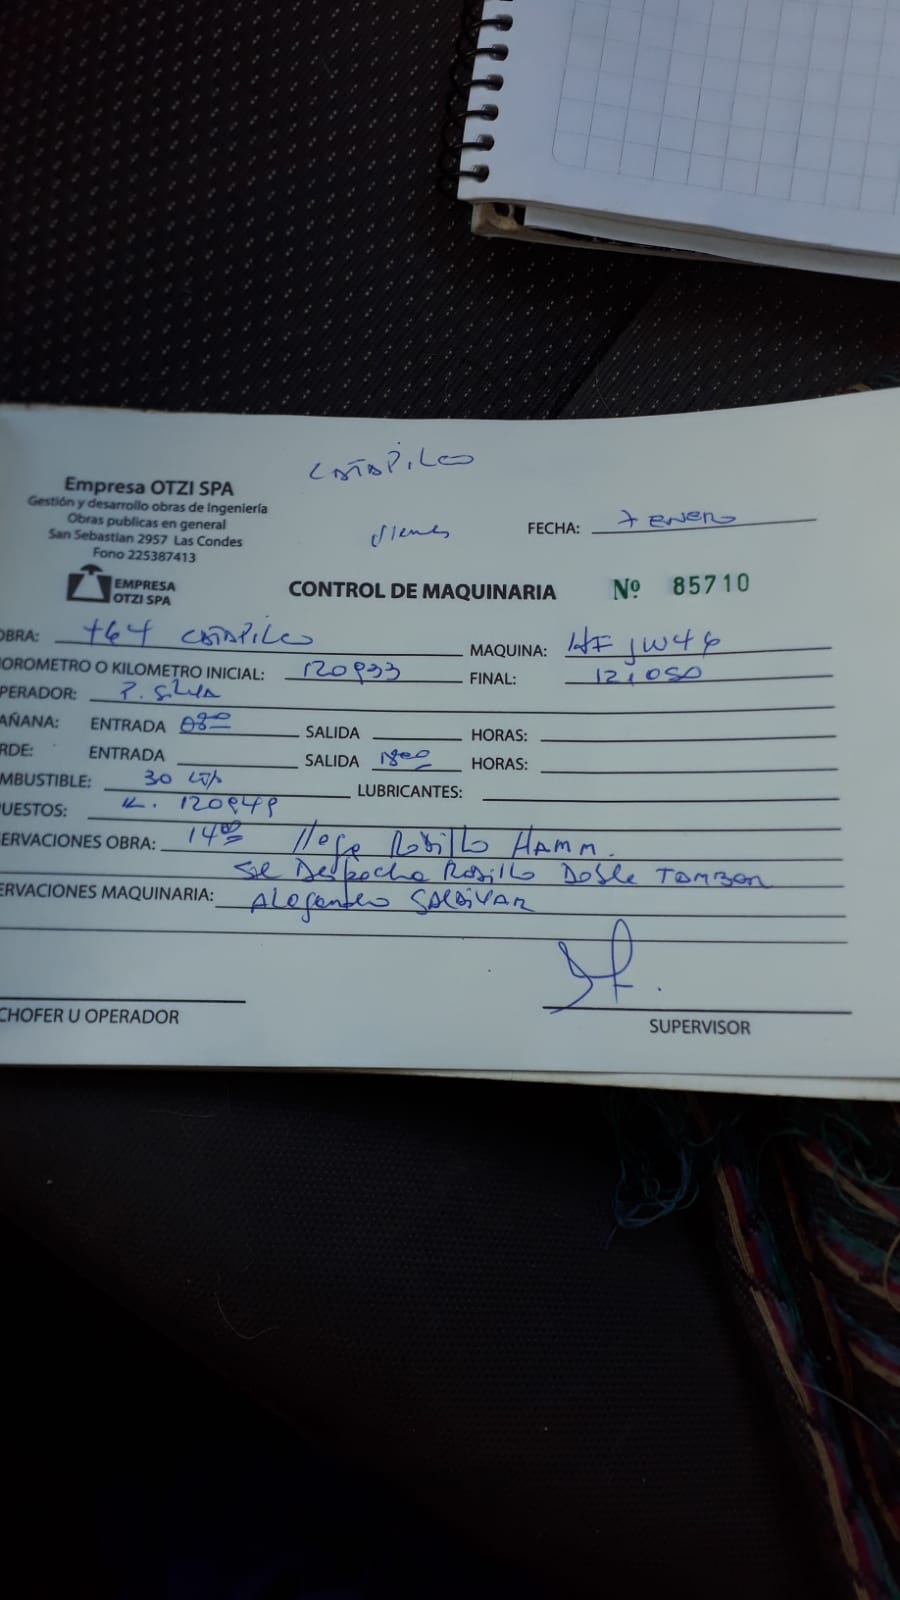 CATAPILCO
Empresa OTZI SPA
Gestión y desarrollo obras de Ingeniería
Obras publicas en general
San Sebastian 2957 Las Condes
Fono 225387413
viernes
FECHA: 7 ENERO
EMPRESA
OTZI SPA
CONTROL DE MAQUINARIA
Nº 85710
OBRA: 464 CATAPILCO
MAQUINA: JW46
OROMETRO O KILOMETRO INICIAL: 120933
FINAL: 121,050
PERADOR: P. SILVA
AÑANA: ENTRADA 0800 SALIDA HORAS:
RDE: ENTRADA SALIDA 1800 HORAS:
MBUSTIBLE: 30 LTS LUBRICANTES:
PUESTOS: K. 120949
ERVACIONES OBRA: 1400 llega Rodillo HAMM.
Se Despacha Rodillo Doble TAMBOR
ERVACIONES MAQUINARIA: Alejandro SALDIVAR
CHOFER U OPERADOR
SUPERVISOR